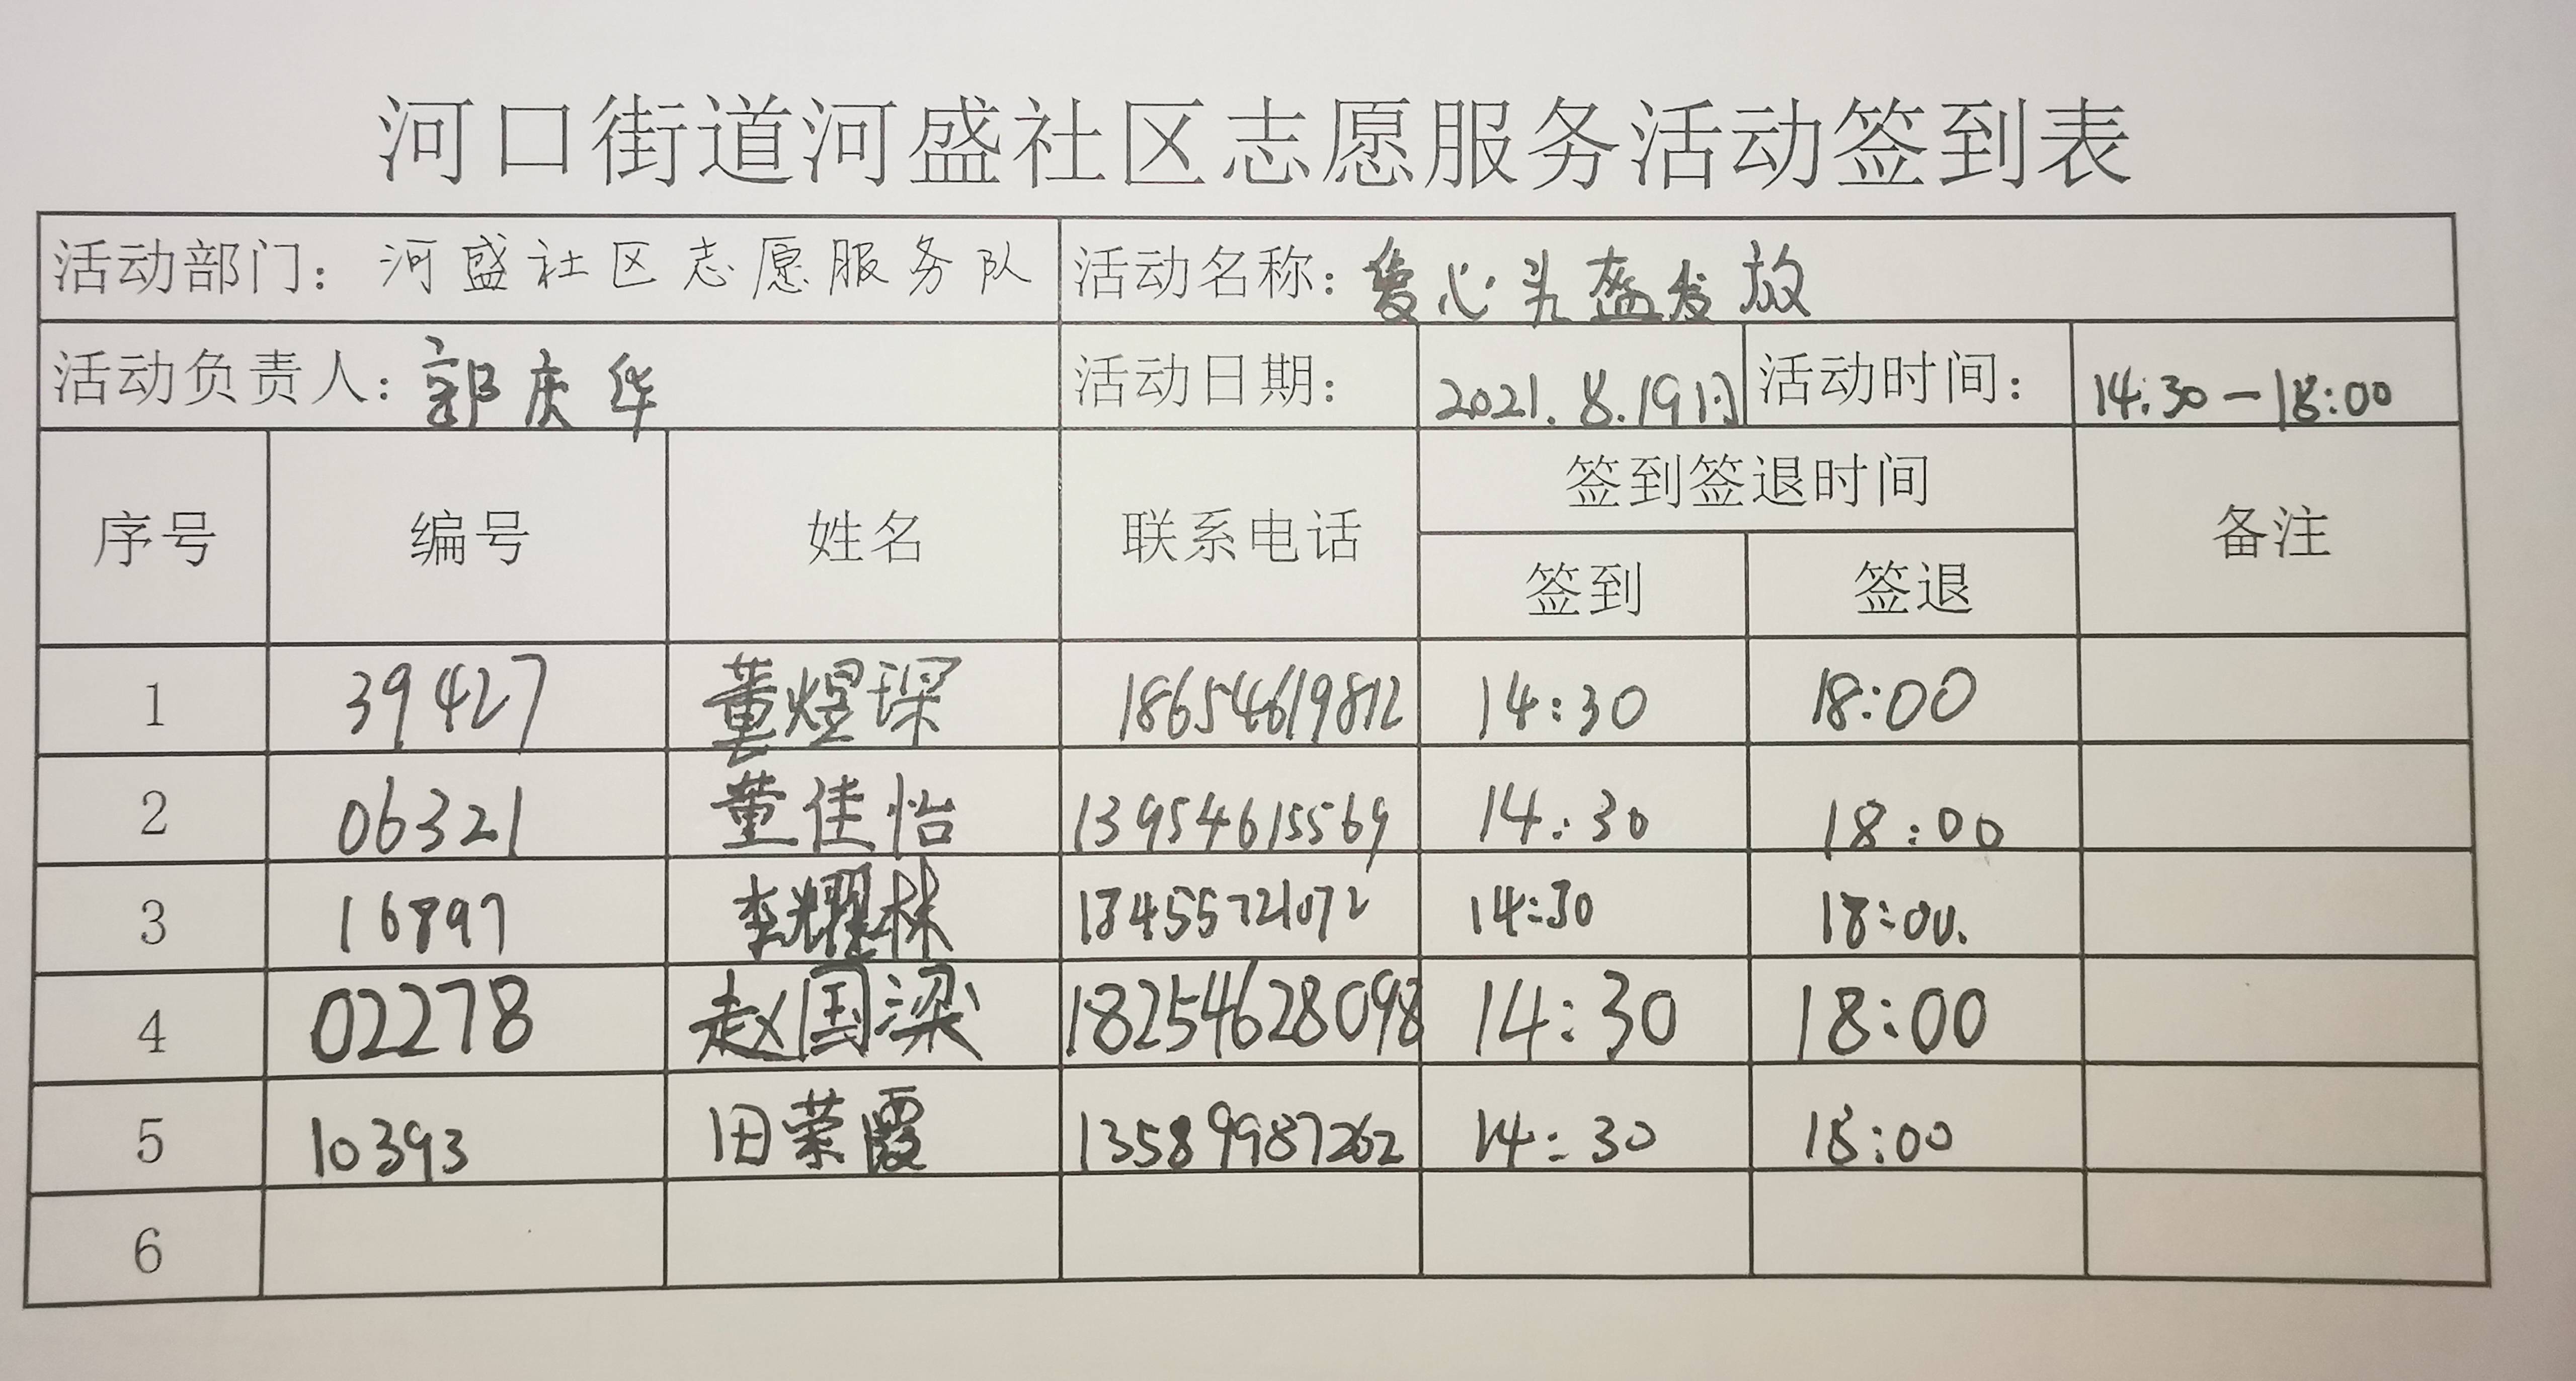 河口街道河盛社区志愿服务活动签到表
活动部门：河盛社区志愿服务队 活动名称：爱心头盔发放
活动负责人：郭庆华 活动日期： 2021.8.19日 活动时间： 14:30-18:00
序号 编号 姓名 联系电话 签到签退时间 备注
签到 签退
1 39427 董煜琛 18654619812 14:30 18:00
2 06321 董佳怡 13954615569 14:30 18:00
3 16897 李耀林 13455721072 14:30 18:00.
4 02278 赵国梁 18254628098 14:30 18:00
5 10393 田荣霞 13589987262 14:30 18:00
6